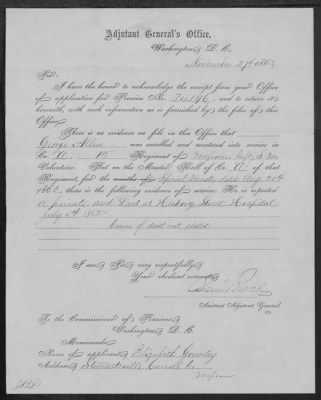 Adjutant General's Office,
Washington, D. C.,
November 27th 1863
Sir:
I have the honor to acknowledge the receipt from your Office
of application for Pension No. and to return it
herewith, with such information as is furnished by the files of this
Office.
There is no evidence on file in this Office that
George Allen was enrolled and mustered into service in
Co. A, Regiment of Missouri
Volunteers. That on the Muster Roll of Co. A of that
Regiment, for the months of Special Muster dated Aug 20th
1862, there is the following evidence of service: He is reported
a private and Died at Hickory Street Hospital
July 1862
Cause of death not stated
I am, Sir, very respectfully,
Your obedient servant,
Assistant Adjutant General
To the Commissioner of Pensions,
Washington, D. C.
Memoranda:
Name of applicant, Elizabeth
Address, Carroll Co.